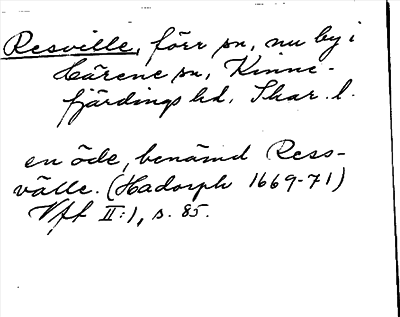 Resville, förr sn, nu by i
Härene sn, Kinne-
fjärdings hd. Skar. l.
en öde, benämd Ress-
välle. (Hadorph 1669-71)
Vff II:1, s. 85.